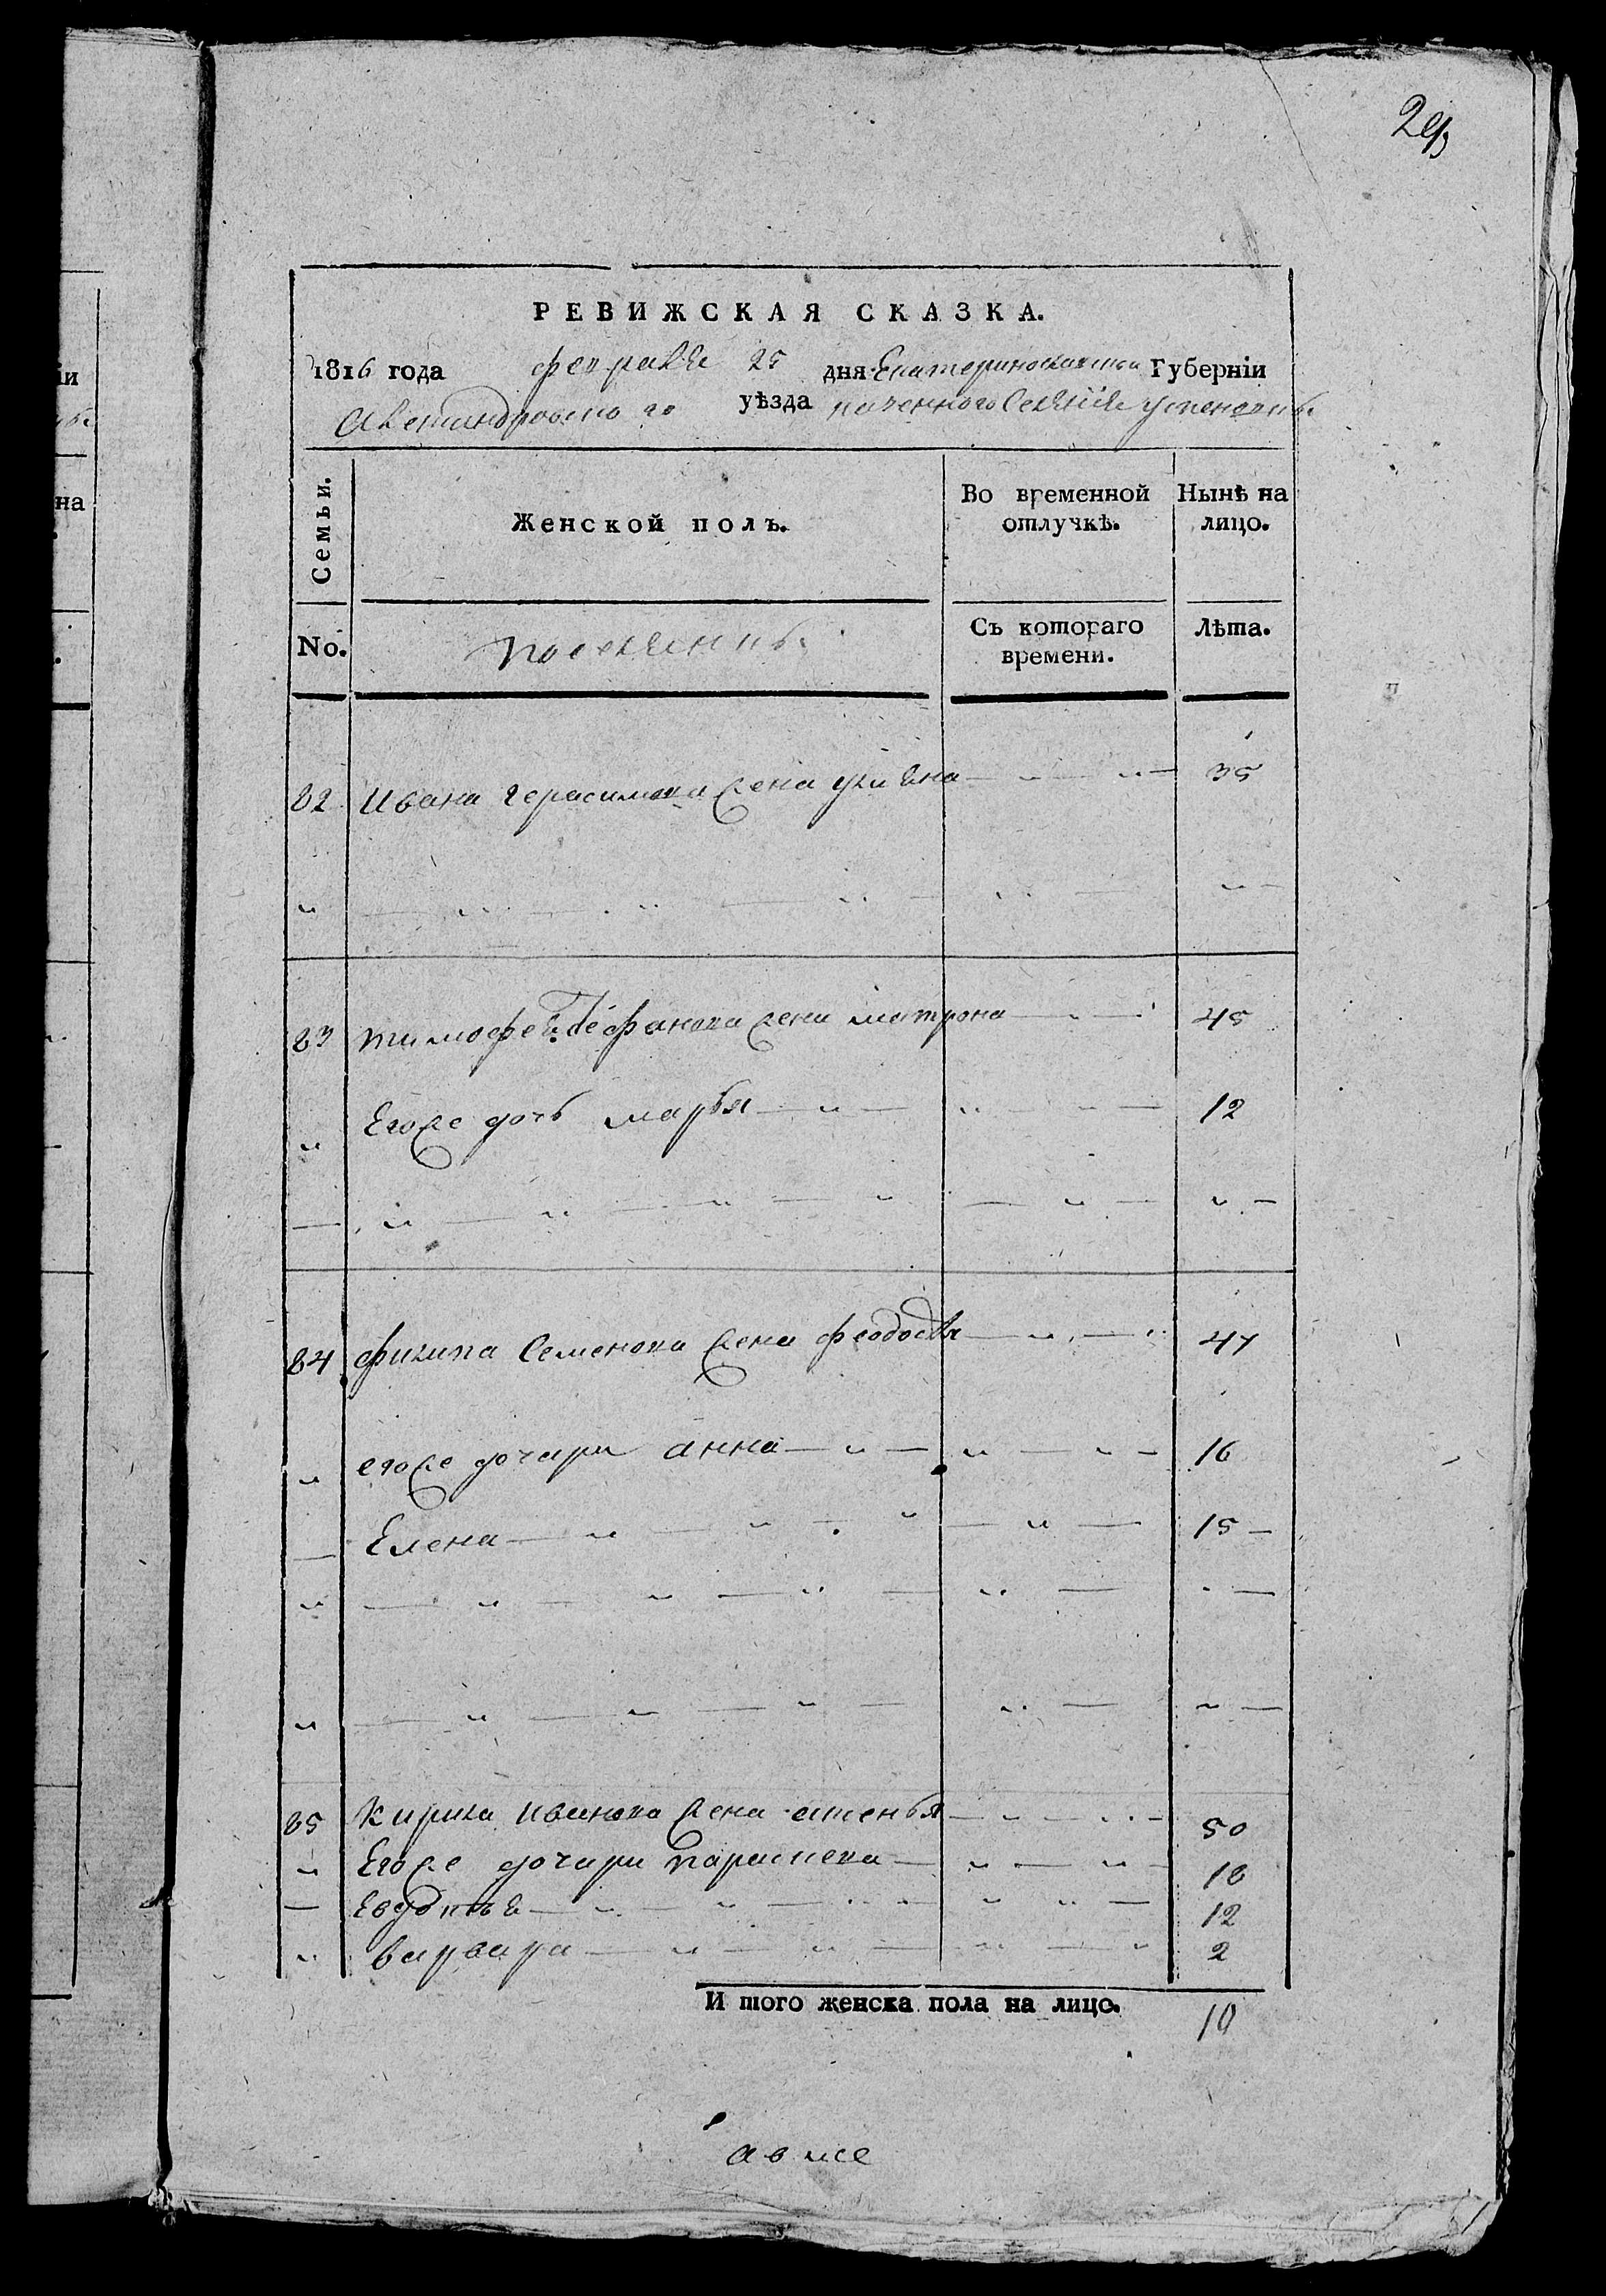 29
РЕВИЖСКАЯ СКАЗКА.
1816 года февраля 25 дня Екатеринославской Губернїи
Александровского уѣзда казенного Селенїя успеновки
Семьи.
Женской полъ.
Во временной отлучкѣ.
Нынѣ на лицо.
No.
поселяниъ
Съ котораго времени.
Лѣта.
82 Ивана Герасимова жена улияна 35
83 тимофея Стефанова жена матрона 45
Егоже дочь марья 12
84 филипа Семенова жена феодосья 47
егоже дочери анна 16
Елена 15
85 Кирила Иванова жена 50
Егоже дочери параскева 18
Евдокѣя 12
варвара 2
И того женска пола на лицо. 10